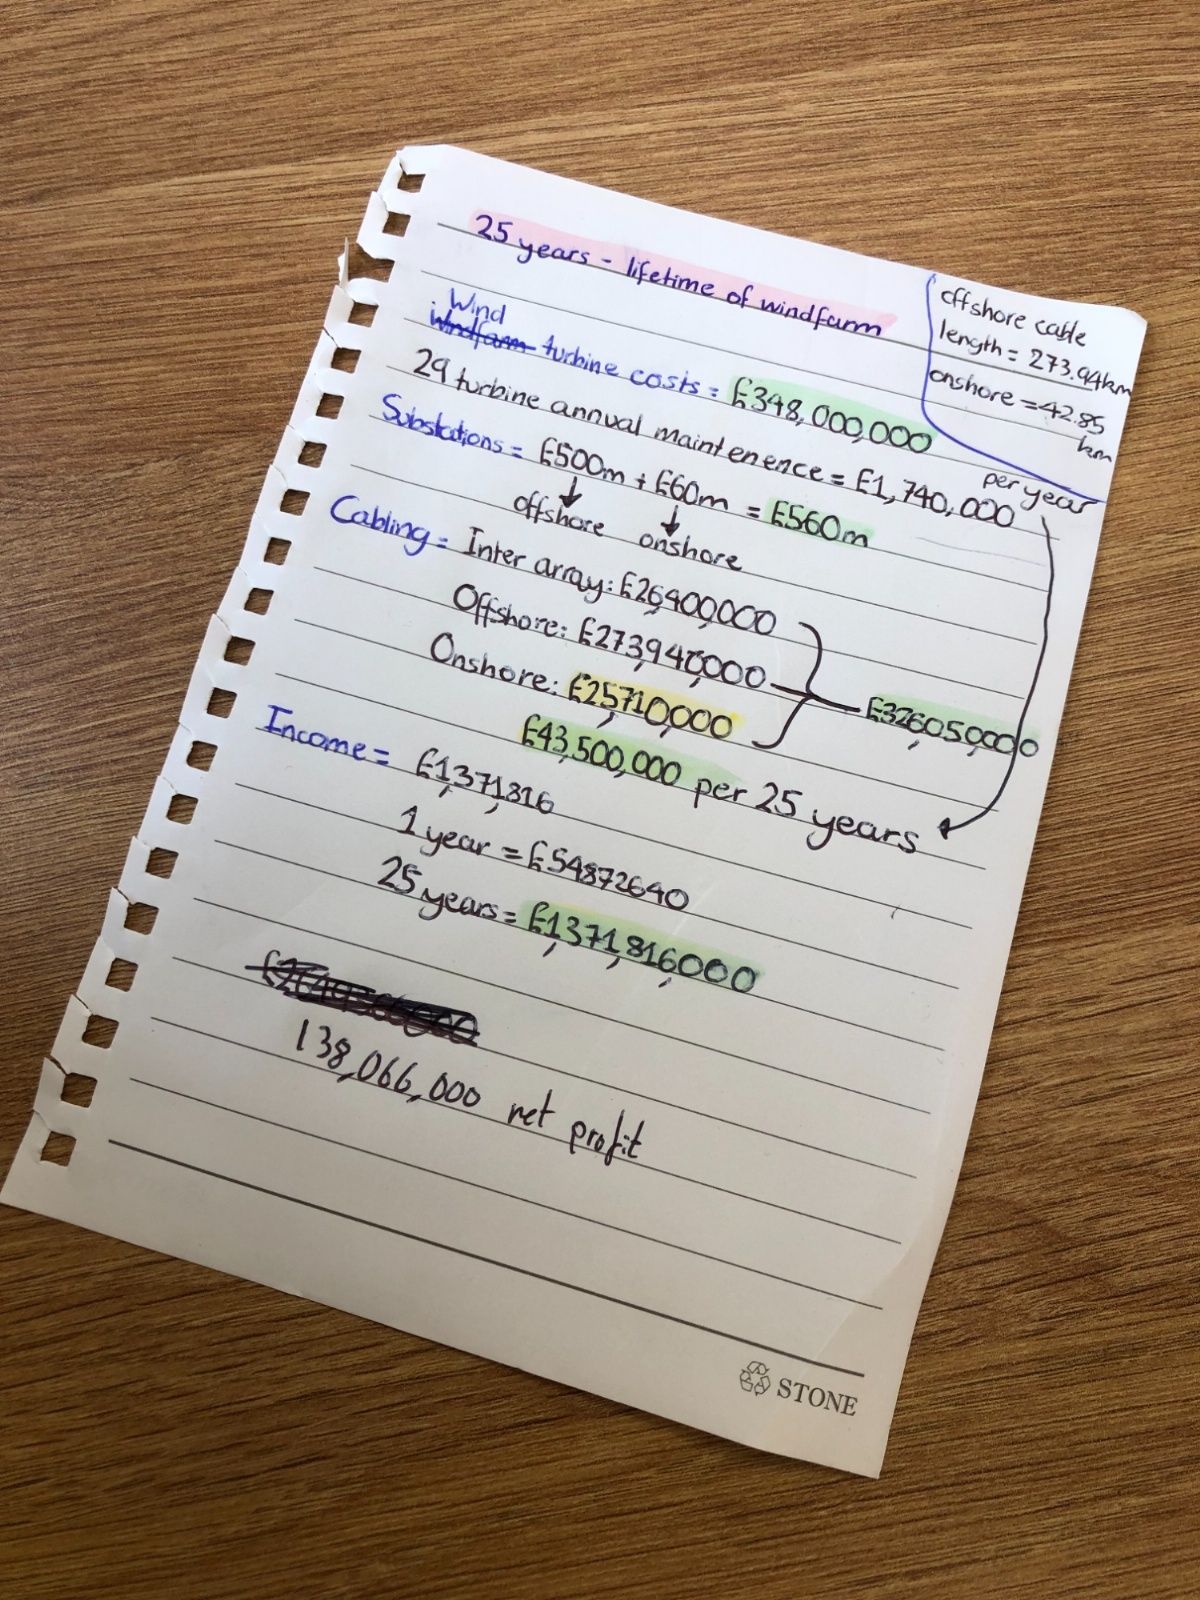 25 years - lifetime of windfarm
offshore cable
length = 273.94km
onshore = 42.85
km
Wind
windfarm turbine costs = £348,000,000
29 turbine annual maintenence = £1,740,000
per year
Substations = £500m + £60m = £560m
offshore onshore
Cabling = Inter array: £26,400,000
Offshore: £273,940,000
Onshore: £25,710,000
£326,050,000
£43,500,000 per 25 years
Income = £1,371,816
1 year = £54872640
25 years = £1,371,816,000
138,066,000 net profit
STONE